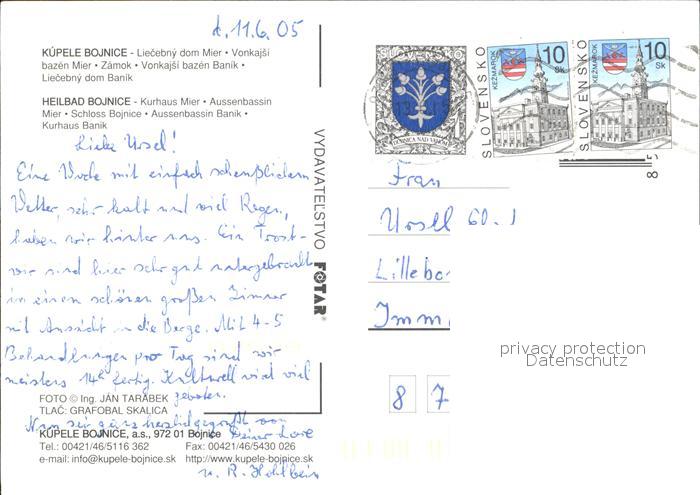 d. 11.6.05
KÚPELE BOJNICE - Liečebný dom Mier • Vonkajší
bazén Mier • Zámok • Vonkajší bazén Baník •
Liečebný dom Baník
HEILBAD BOJNICE - Kurhaus Mier • Aussenbassin
Mier • Schloss Bojnice • Aussenbassin Banik •
Kurhaus Banik
Liebe Ursel!
Eine Woche mit einfach scheußlichem
Wetter, sehr kalt und viel Regen,
haben wir hinter uns. Ein Trost-
wir sind hier sehr gut untergebracht
in einem schönen großen Zimmer
mit Aussicht in die Berge. Mit 4-5
Behandlungen pro Tag sind wir
meistens 14h fertig. Kulturell wird viel
geboten.
FOTO © Ing. JÁN TARÁBEK
TLAČ: GRAFOBAL SKALICA
Nun sei ganz herzlich gegrüßt von
Deiner Lore
u. R.
KÚPELE BOJNICE, a.s., 972 01 Bojnice
Tel.: 00421/46/5116 362 Fax: 00421/46/5430 026
e-mail: info@kupele-bojnice.sk http://www.kupele-bojnice.sk
VYDAVATEĽSTVO FOTAR®
SLOVENSKO
DUBNICA NAD VÁHOM
SLOVENSKO
KEŽMAROK
10 Sk
SLOVENSKO
KEŽMAROK
10 Sk
Frau
Lillebo
Imm
8 7
privacy protection
Datenschutz